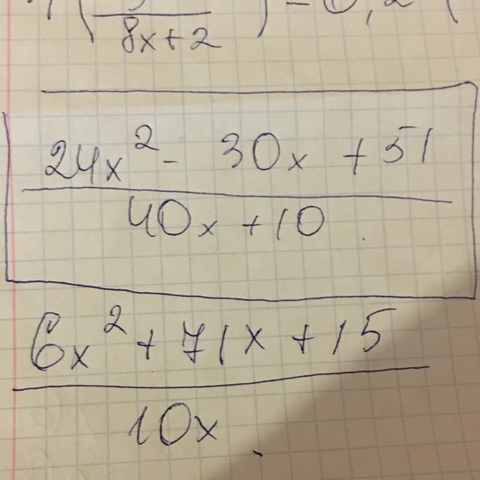 8x+2 ) - 0,2 (
24x² - 30x + 51
40x + 10
6x² + 71x + 15
10x